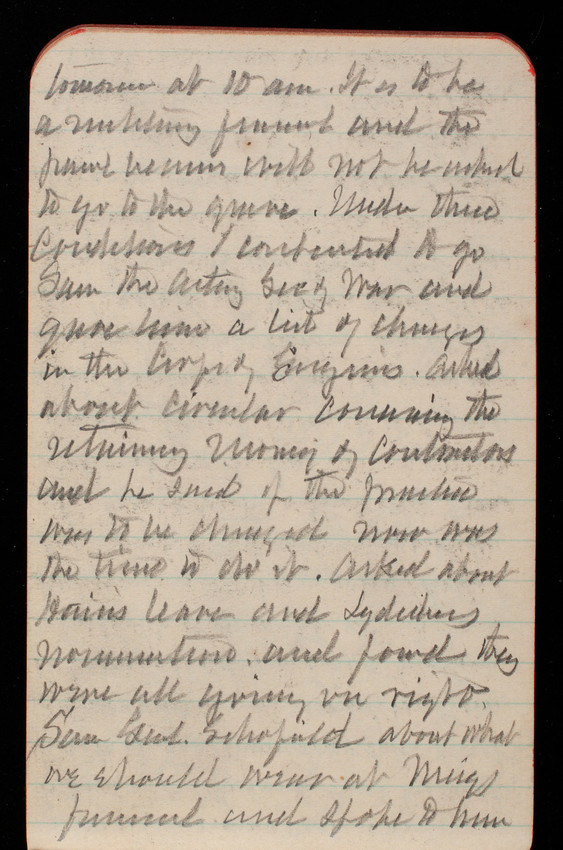 tomorrow at 10 am. It is to be
a military funeral and the
paul bearers will not be asked
to go to the grave. Under these
Conditions I consented to go
Saw the Acting Secy War and
gave him a list of changes
in the Corps of Engineers. Asked
about circular concerning the
retaining money of contractors
and he said if the practice
was to be changed now was
the time to do it. Asked about
Hains leave and Lydeckers
nomination. and found they
were all going on right.
Saw Genl. Schofield about what
we should wear at Meigs
funeral and spoke to him